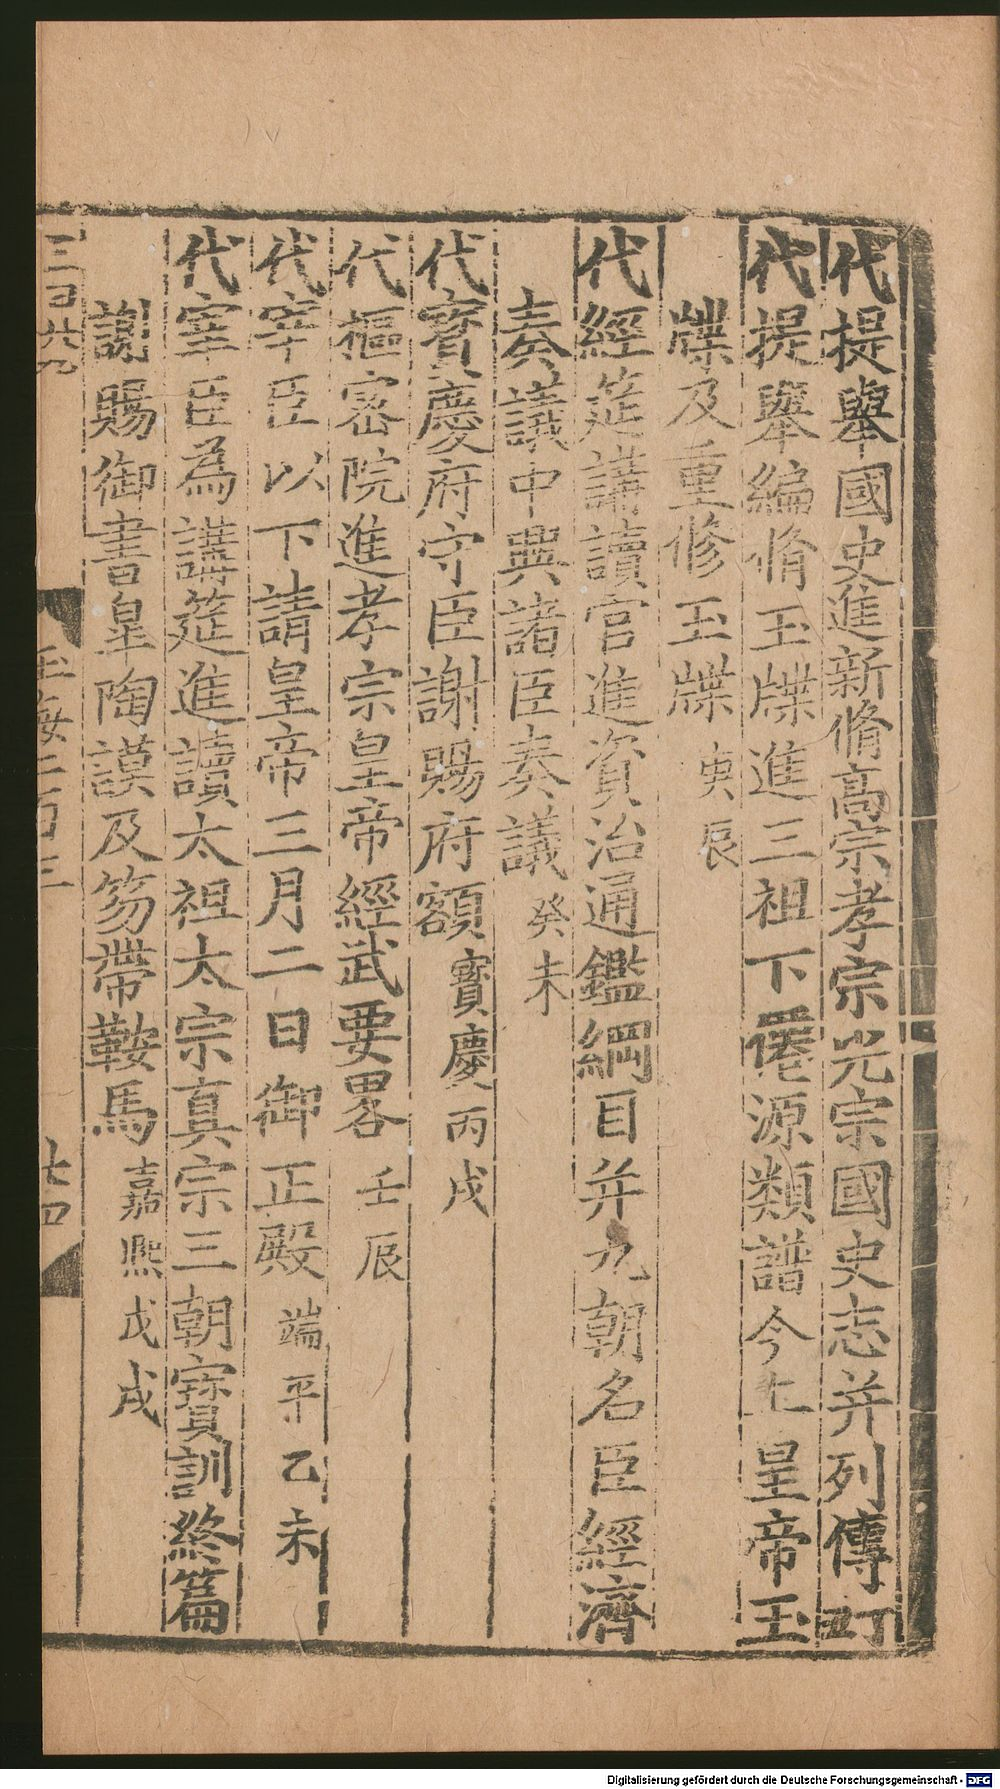 代提舉國史進新脩高宗孝宗光宗國史志并列傳
代提舉編脩玉牒進三祖下僊源類譜今上皇帝玉
牒及重修玉牒庚辰
代經筵講讀官進資治通鑑綱目并九朝名臣經濟
奏議中興諸臣奏議癸未
代寶慶府守臣謝賜府額寶慶丙戌
代樞密院進孝宗皇帝經武要畧壬辰
代宰臣以下請皇帝三月二日御正殿端平乙未
代宰臣為講筵進讀太祖太宗真宗三朝寶訓終篇
謝賜御書皐陶謨及笏帶鞍馬嘉熙戊戌
玉海二百三
Digitalisierung gefördert durch die Deutsche Forschungsgemeinschaft - DFG